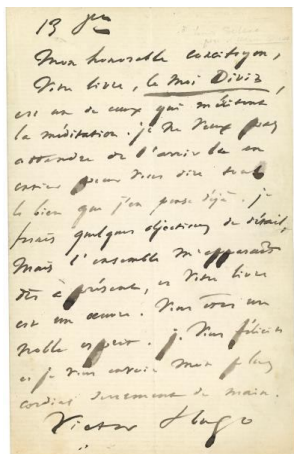 13 jer
Mon honorable concitoyen,
Votre livre, le Moi Divin,
est un de ceux qui méritent
la méditation. je ne veux pas
attendre de l'avoir lu en
entier pour vous dire tout
le bien que j'en pense déjà. je
ferais quelques objections de détail,
Mais l'ensemble m'apparaît
dès à présent, et votre livre
est un œuvre. Vous êtes un
noble esprit. je vous félicite
et je vous envoie mon plus
cordial serrement de main.
Victor Hugo